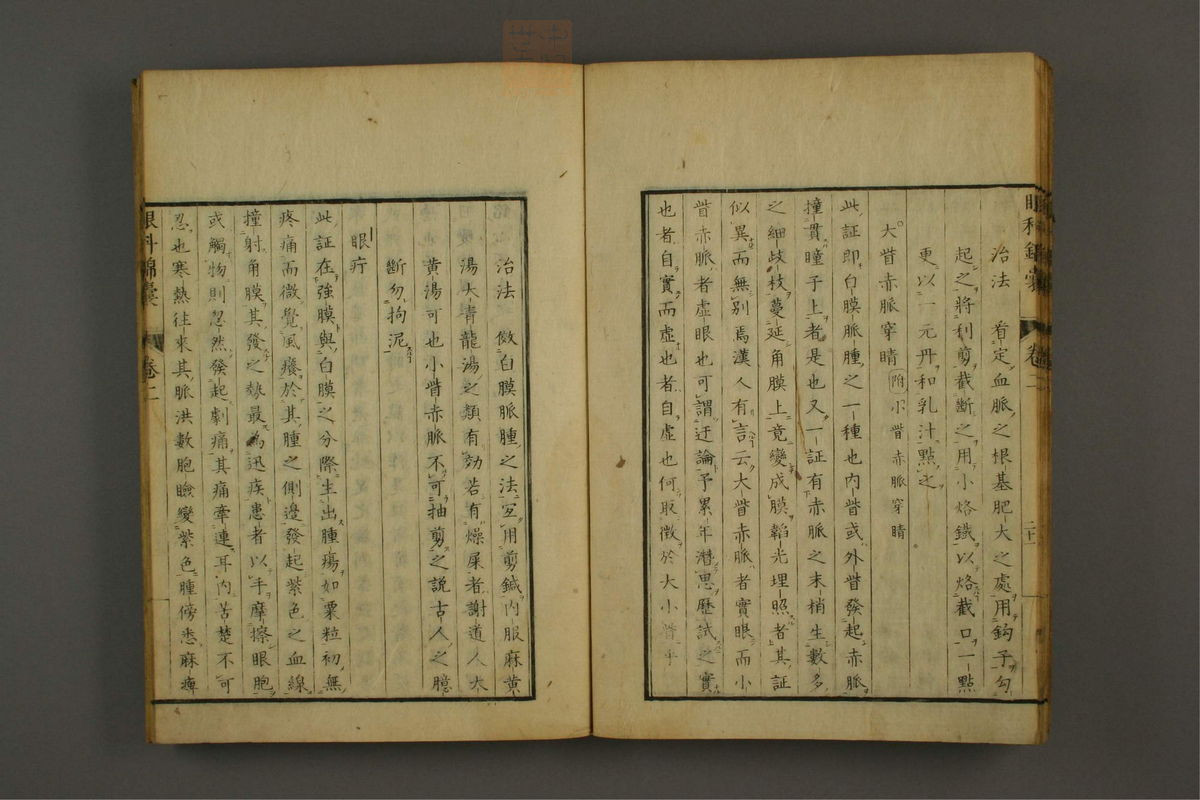 眼科錦囊 卷二
治法 看定血脈之根基肥大之處用鈎子勾
起之將利剪截斷之用小烙鐵以烙截口一點
更以一元丹和乳汁點之
大眥赤脈穿睛 附小眥赤脈穿睛
此証即白膜脈腫之一種也内眥或外眥發起赤脈
撞貫瞳子上者是也又一証有赤脈之末梢生數多
之細歧枝蔓延角膜上竟變成膜韜光埋照者其証
似異而無別焉漢人有言云大眥赤脈者實眼而小
眥赤脈者虚眼也可謂迂論予累年潛思歷試之實
也者自實而虚也者自虚也何取徵於大小眥乎
治法 倣白膜脈腫之法宜用剪鍼内服麻黄
湯大青龍湯之類有効若有燥屎者謝道人大
黄湯可也小眥赤脈不可抽剪之説古人之臆
斷勿拘泥
眼疔
此証在強膜與白膜之分際生出腫瘍如粟粒初無
疼痛而微覺風癢於其腫之側邊發起紫色之血線
撞射角膜其發之勢最為迅疾患者以手摩擦眼胞
或觸物則忽然發起劇痛其痛牽連耳内苦楚不可
忍也寒熱往來其脈洪數胞瞼變紫色腫傍悉麻痺
眼科錦囊 卷二